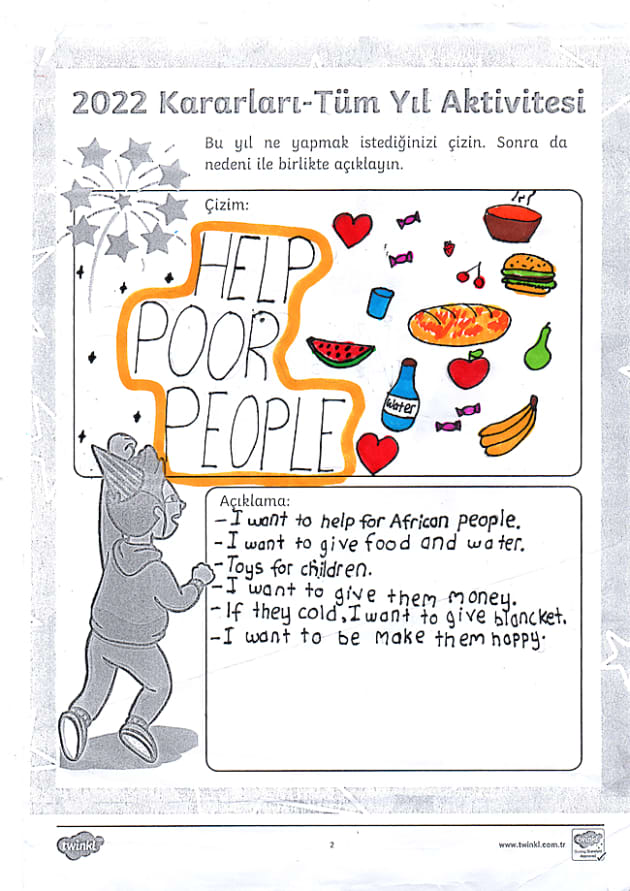 2022 Kararları-Tüm Yıl Aktivitesi
Bu yıl ne yapmak istediğinizi çizin. Sonra da
nedeni ile birlikte açıklayın.
Çizim:
HELP
POOR
PEOPLE
water
Açıklama:
-I want to help for African people.
-I want to give food and water.
-Toys for children.
-I want to give them money.
-If they cold, I want to give blancket.
-I want to be make them happy.
twinkl
2
www.twinkl.com.tr
twinkl